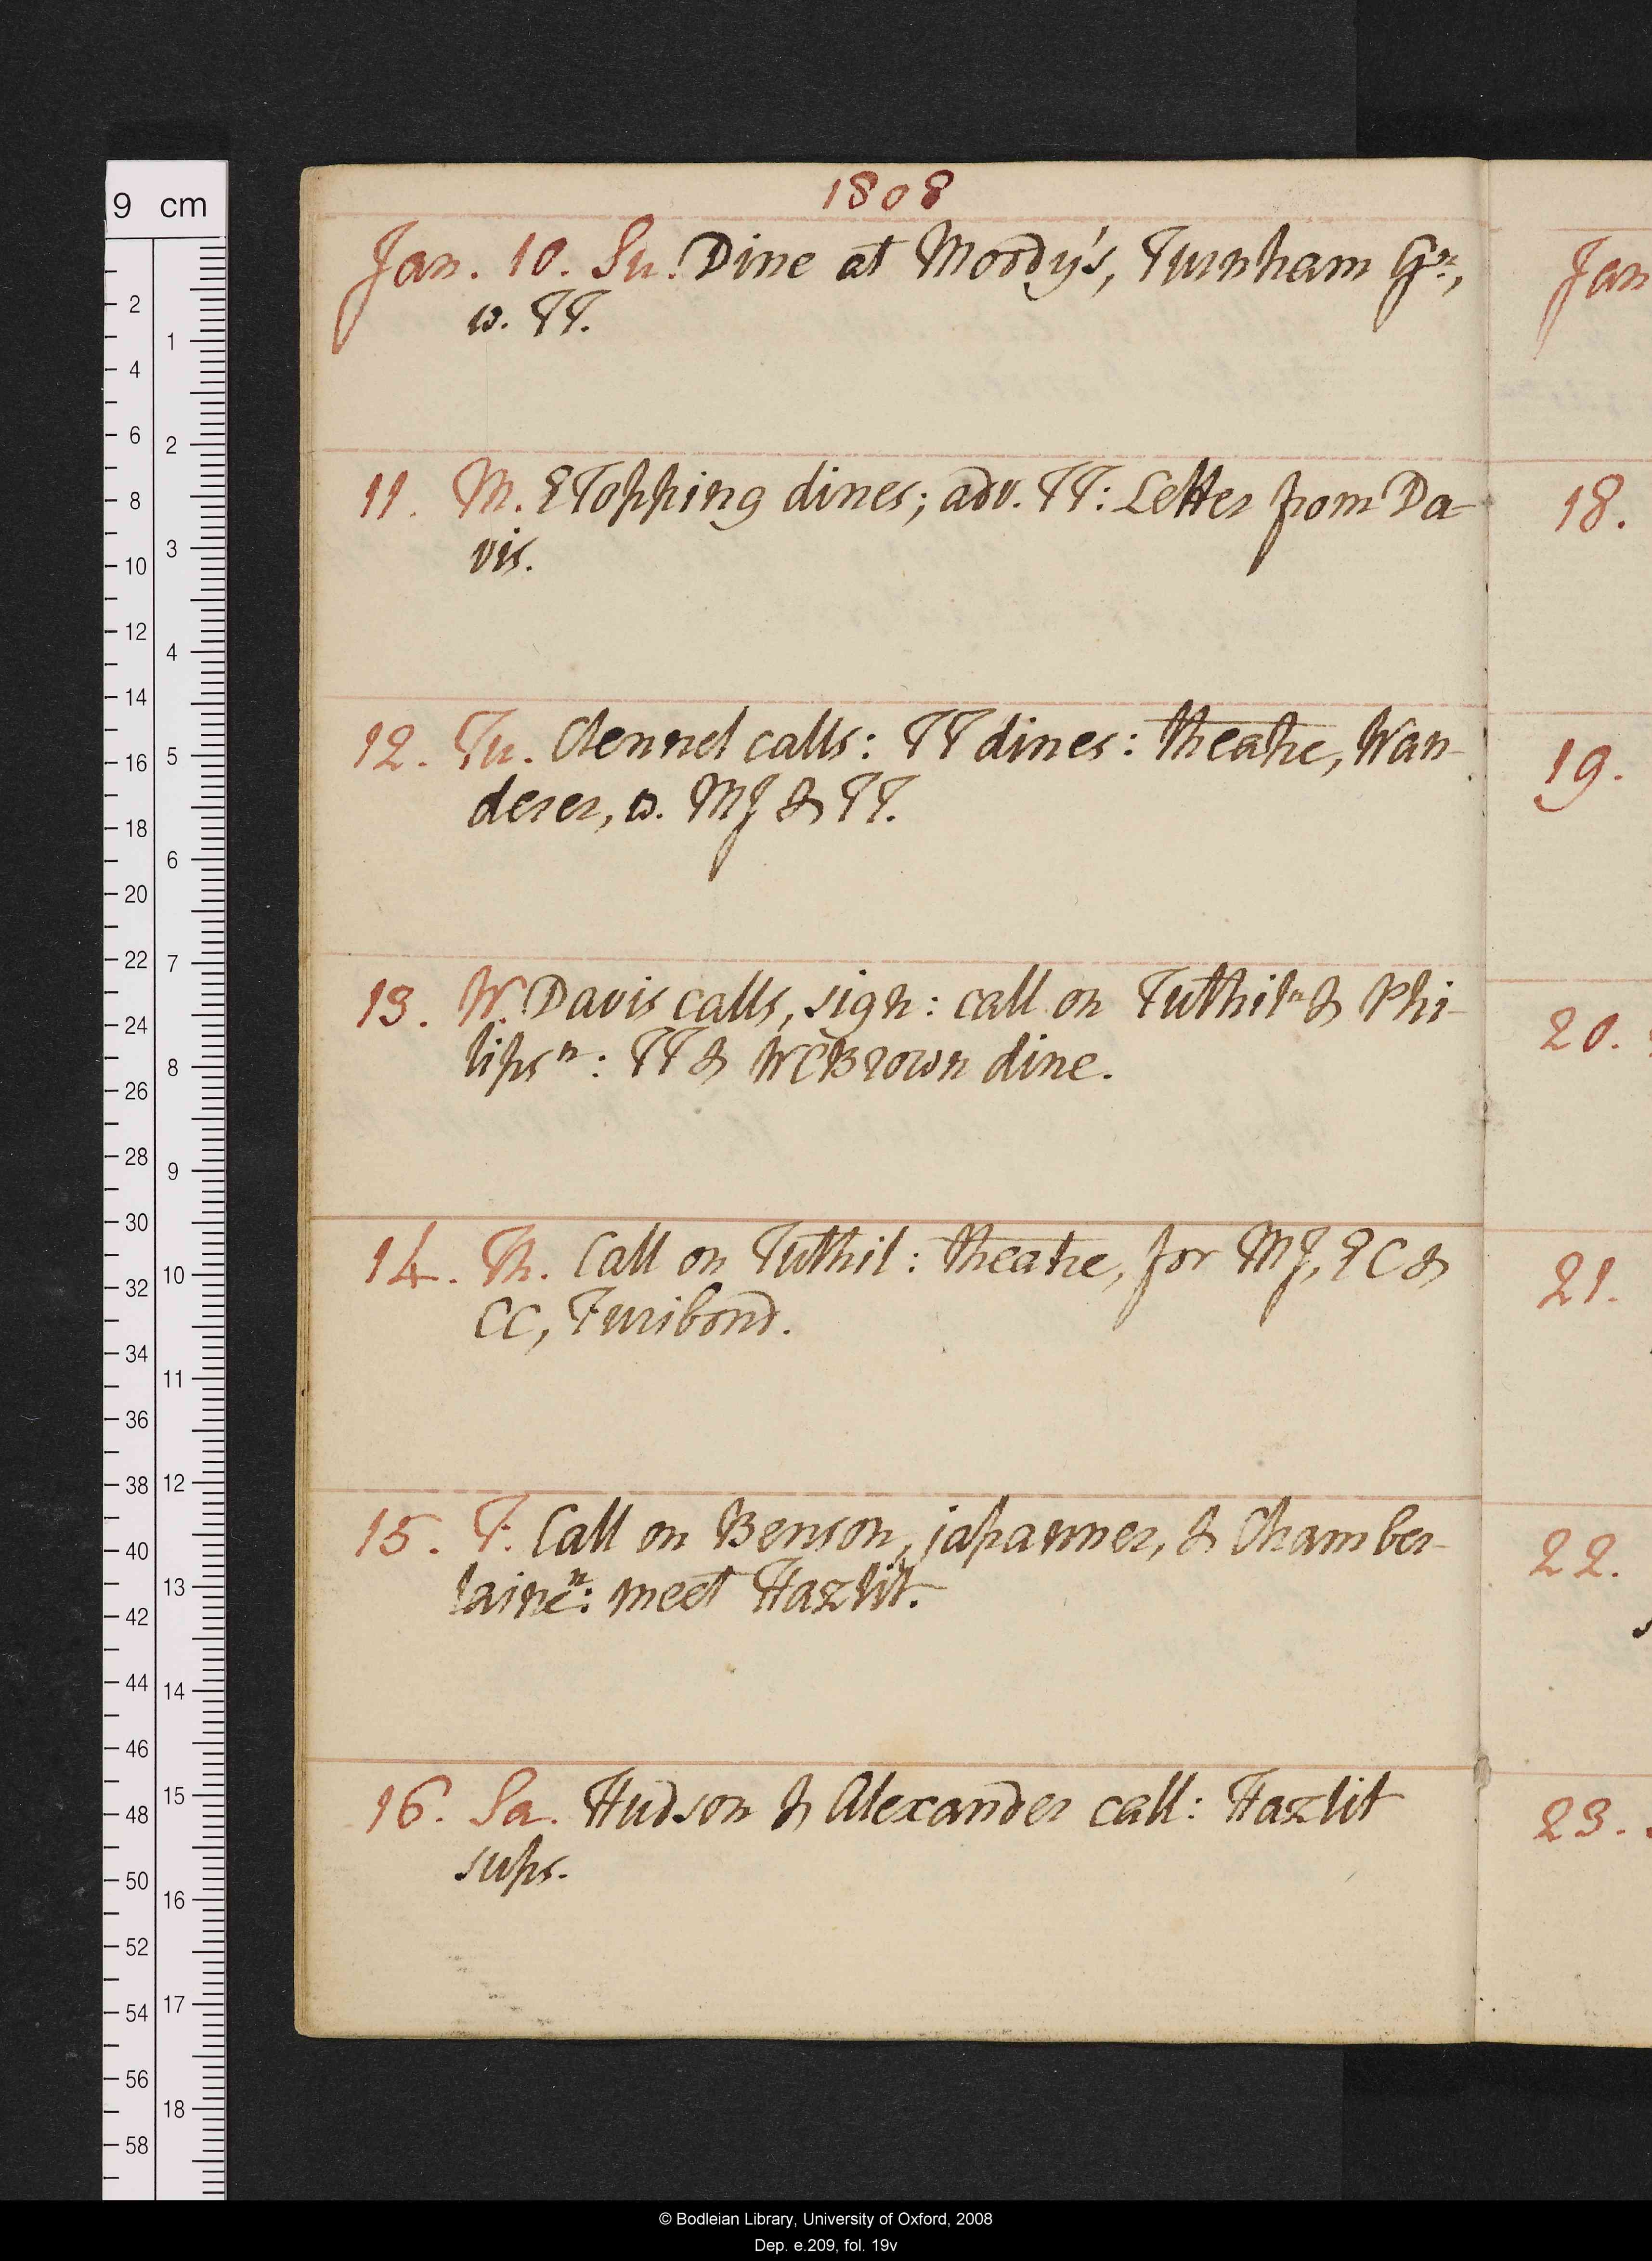 1808
Jan. 10. Su. Dine at Moody's, Turnham Gn,
w. TT.
11. M. E Topping dines; adv. TT: Letter from Da-
vis.
12. Tu. Clennel calls: TT dines: theatre, Wan-
derer, w. MJ & TT.
13. W. Davis calls, sign: call on Tuthil n & Phi-
lips n: TT & WC Brown dine.
14. Th. Call on Tuthil: theatre, for MJ, EC &
CC, Furibond.
15. F. Call on Benson, japanner, & Chamber-
laine n: meet Hazlit.
16. Sa. Hudson & Alexander call: Hazlit
sups.
Jan
18.
19.
20.
21.
22.
23.
9 cm
2
4
6
8
10
12
14
16
18
20
22
24
26
28
30
32
34
36
38
40
42
44
46
48
50
52
54
56
58
1
2
3
4
5
6
7
8
9
10
11
12
13
14
15
16
17
18
© Bodleian Library, University of Oxford, 2008
Dep. e.209, fol. 19v